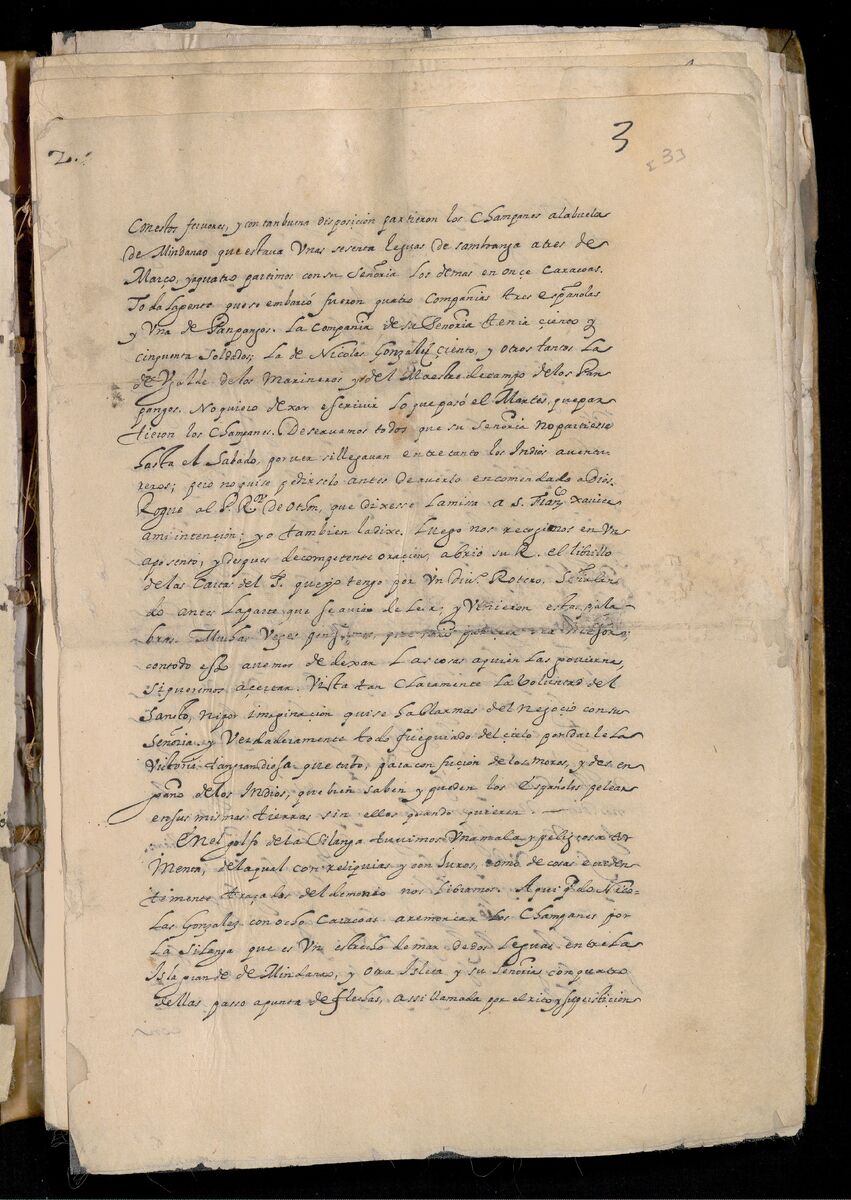 2.
3
33
Con estos feruores, y con tan buena disposicion partieron los Champanes a la buelta
de Mindanao que estaua Unas sesenta leguas de sambuanga a tres de
Março, ya quatro partimos con su Señoria los demas en onçe Caracoas.
Toda la gente que se embarcó fueron quatro Compañias tres españolas
y Una de Panpangos. La Compañia de su Señoria tenia çiento y
cinquenta soldados; la de Nicolas Gonzalez çiento, y otros tantos la
de Vgalde de los Marineros y del Maestre de campo de los Pan
pangos. No quiero dexar escriuir lo que pasó el Martes, que par
tieron los Champanes. Deseauamos todos que su Señoria no partiesse
hasta el Sabado, por ver si llegauan entre tanto los Indios auentu
reros; pero no quise pedirselo antes de auerlo encomendado a Dios.
Rogué al P. que dixesse la missa a S. Franco xauier
a mi intencion; yo tambien la dixe. Luego nos recogimos en Un
aposento, y despues de competente oracion, abrio su R. el librillo
de las Cartas del S. que yo tengo por Un Rotero, Señalan
do antes la parte que se auia de leer; y Vinieron estas pala
bras. Muchas Vezes pensamos, que
con todo esso auemos de dexar las cosas a quien las gouierna,
si queremos açertar. Vista tan claramente la Voluntad del
Santo, ni por imaginacion quise hablar mas del negocio con su
Señoria. y Verdaderamente todo fue guiado del cielo por darle la
Victoria tan grandiosa que tubo, para confucion de los moros, y desen
gaño de los Indios, que bien saben y pueden los Españoles pelear
en sus mismas tierras sin ellos quando quieren.
En el golfo de la Silanga tuuimos Una mala y peligrosa tor
menta, de la qual con reliquias y conjuros, como de cosas euiden
temente traçadas del demonio nos libramos. Aqui Nico-
las Gonzalez con ocho Caracoas a remolcar los Champanes por
La Silanga que es Un estrecho de mar de dos leguas entre la
Isla grande de Mindanao, y otra Isleta y su Señoria con quatro
dellas passo a punta de flechas, assi llamada por el rito y supersticion